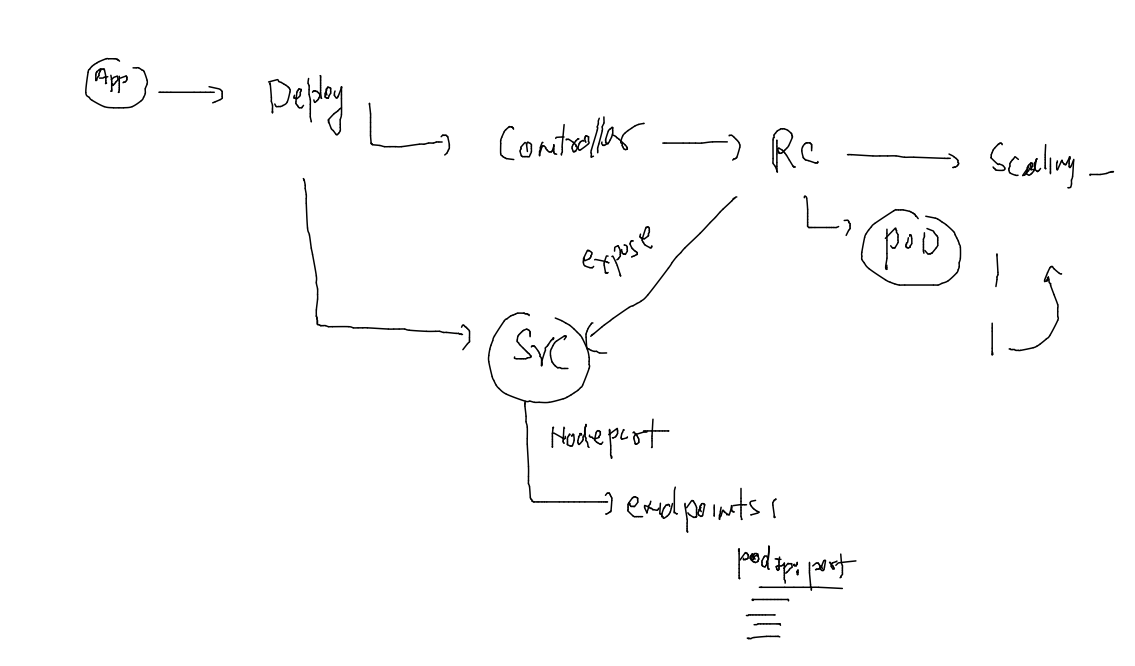 App
Deploy
Controller
RC
Scaling
POD
expose
SVC
Nodeport
endpoints:
podIp:port